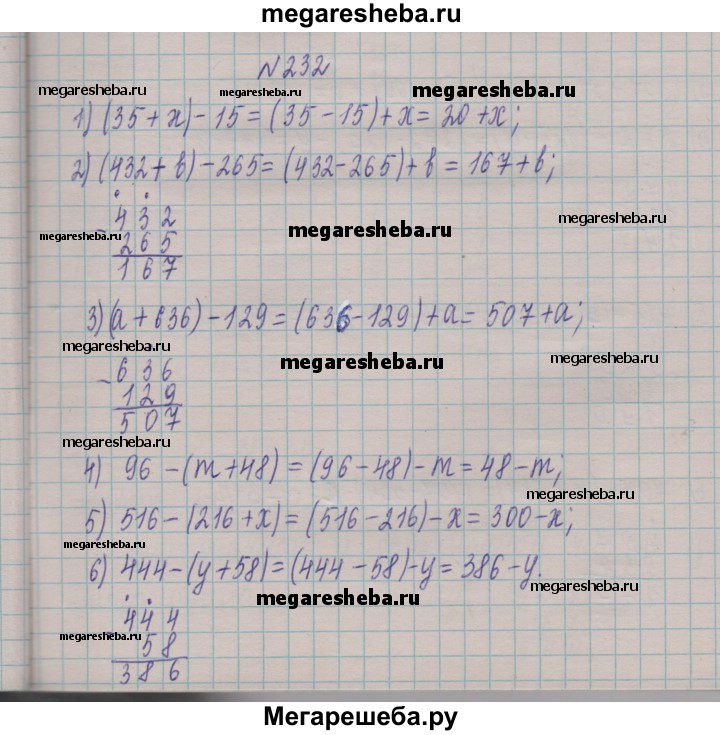 megaresheba.ru
№232
megaresheba.ru megaresheba.ru megaresheba.ru
1) (35 + x) - 15 = (35 - 15) + x = 20 + x;
megaresheba.ru megaresheba.ru
2) (432 + b) - 265 = (432 - 265) + b = 167 + b;
- 432
megaresheba.ru megaresheba.ru megaresheba.ru
265
167
3) (a + 636) - 129 = (636 - 129) + a = 507 + a;
megaresheba.ru megaresheba.ru megaresheba.ru
- 636
129
507
megaresheba.ru
4) 96 - (m + 48) = (96 - 48) - m = 48 - m;
megaresheba.ru megaresheba.ru
5) 516 - (216 + x) = (516 - 216) - x = 300 - x;
megaresheba.ru
6) 444 - (y + 58) = (444 - 58) - y = 386 - y.
megaresheba.ru megaresheba.ru
- 444
megaresheba.ru megaresheba.ru
58
386
Мегарешеба.ру